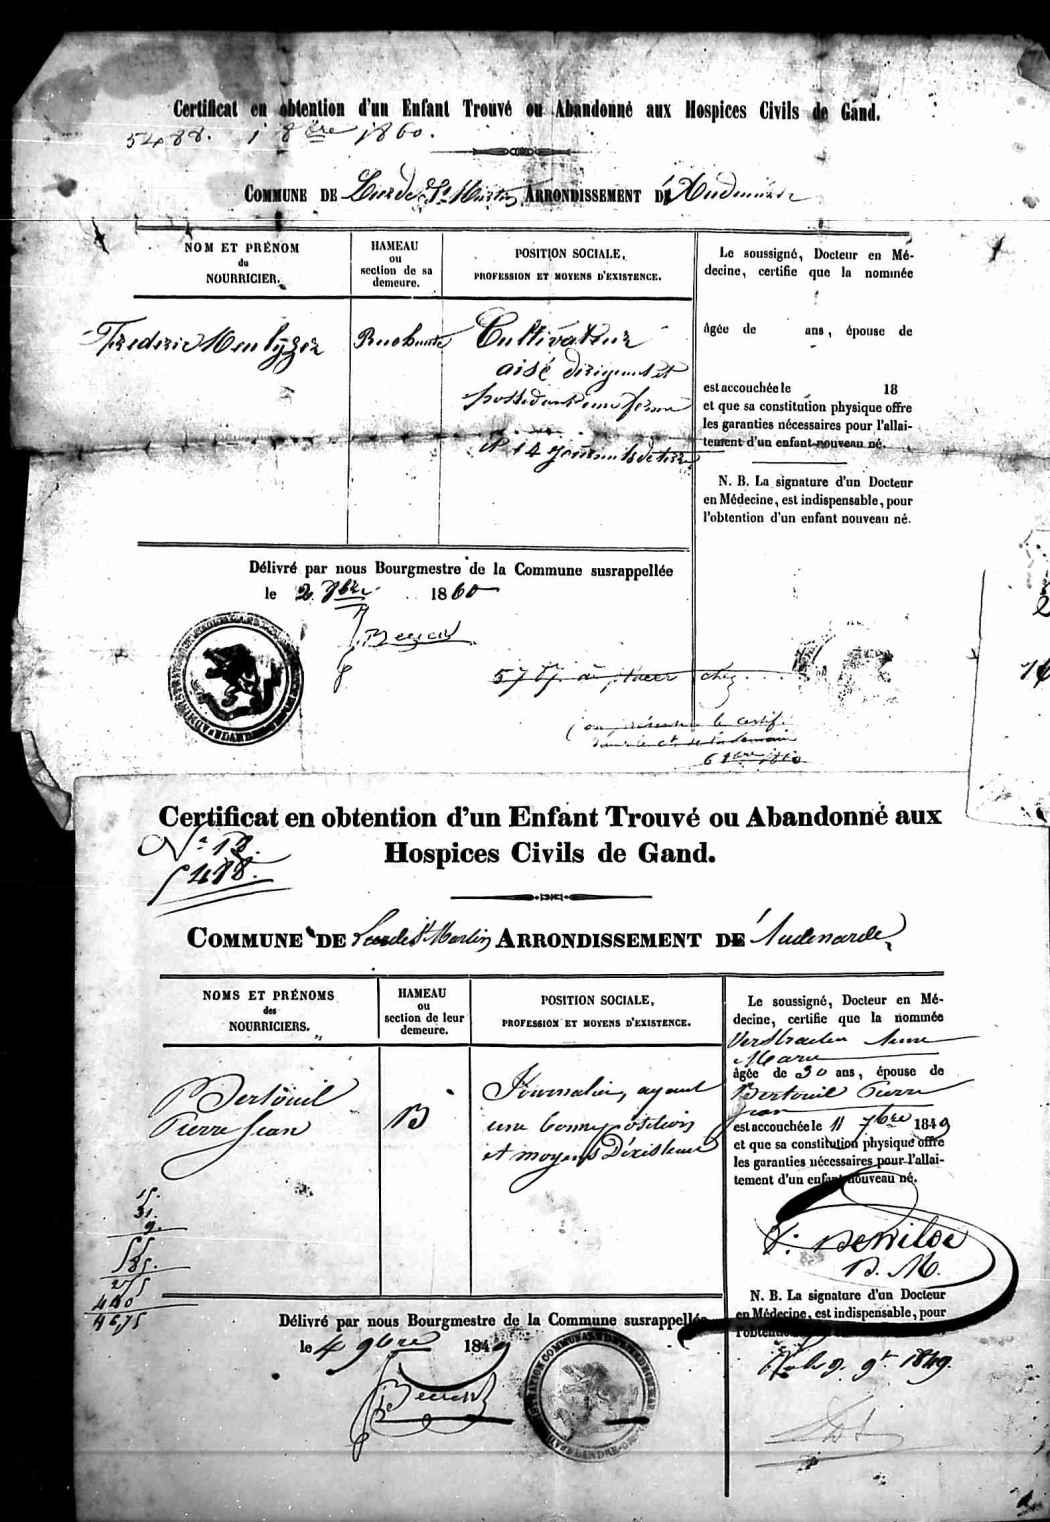 Certificat en obtention d'un Enfant Trouvé ou Abandonné aux Hospices Civils de Gand.
5488. 1 8bre 1860.
COMMUNE DE St Martin ARRONDISSEMENT DE Audenarde
NOM ET PRÉNOM
du
NOURRICIER.
HAMEAU
ou
section de sa
demeure.
POSITION SOCIALE,
PROFESSION ET MOYENS D'EXISTENCE.
Frederic
Cultivateur
aisé dirigeant et
possedant une ferme
et 14 journals de terre
Le soussigné, Docteur en Mé-
decine, certifie que la nommée
âgée de ans, épouse de
est accouchée le 18
et que sa constitution physique offre
les garanties nécessaires pour l'allai-
tement d'un enfant nouveau né.
N. B. La signature d'un Docteur
en Médecine, est indispensable, pour
l'obtention d'un enfant nouveau né.
Délivré par nous Bourgmestre de la Commune susrappellée
le 2 1860
57 à placer chez
le certif.
Certificat en obtention d'un Enfant Trouvé ou Abandonné aux
Hospices Civils de Gand.
N° 13.
5488.
COMMUNE DE St Martin ARRONDISSEMENT DE Audenarde
NOMS ET PRÉNOMS
des
NOURRICIERS.
HAMEAU
ou
section de leur
demeure.
POSITION SOCIALE,
PROFESSION ET MOYENS D'EXISTENCE.
Bertouil
Pierre Jean
B
Journalier, ayant
une bonne position
et moyens D'existence
Le soussigné, Docteur en Mé-
decine, certifie que la nommée
Verstraeten Anne
Marie
âgée de 30 ans, épouse de
Bertouil Pierre
Jean
est accouchée le 11 7bre 1849
et que sa constitution physique offre
les garanties nécessaires pour l'allai-
tement d'un enfant nouveau né.
DeWilde
D. M.
N. B. La signature d'un Docteur
en Médecine, est indispensable, pour
Délivré par nous Bourgmestre de la Commune susrappellée
le 4 9bre 1849
15.
31.
9.
440
4675
9. 9r 1849